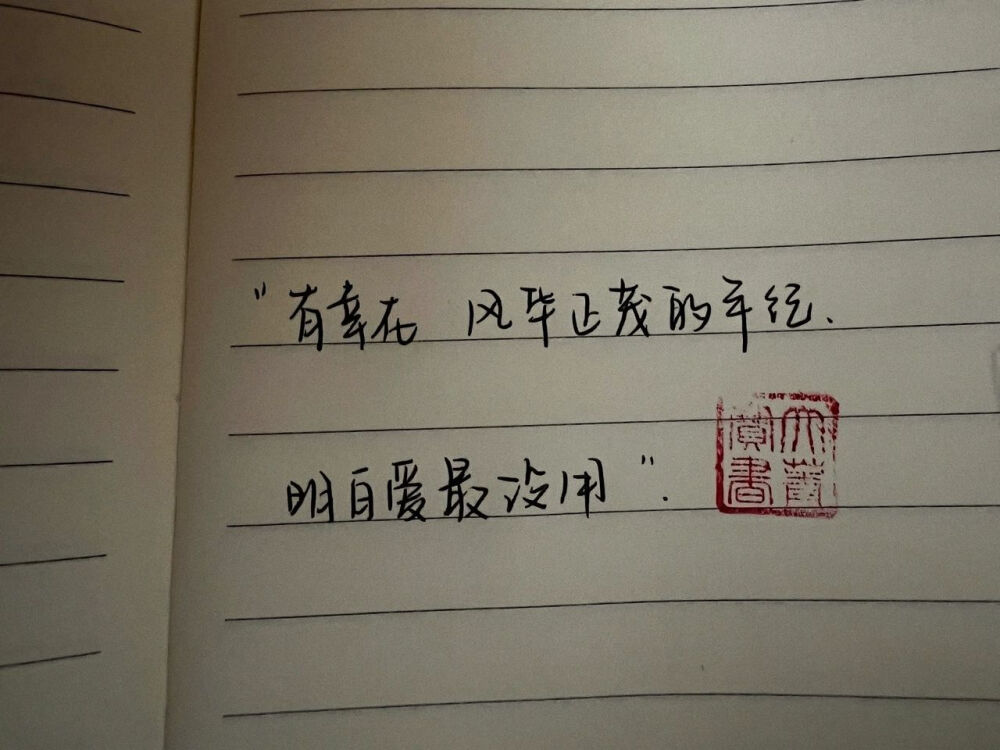 "有幸在 风华正茂的年纪.
明白爱最没用".